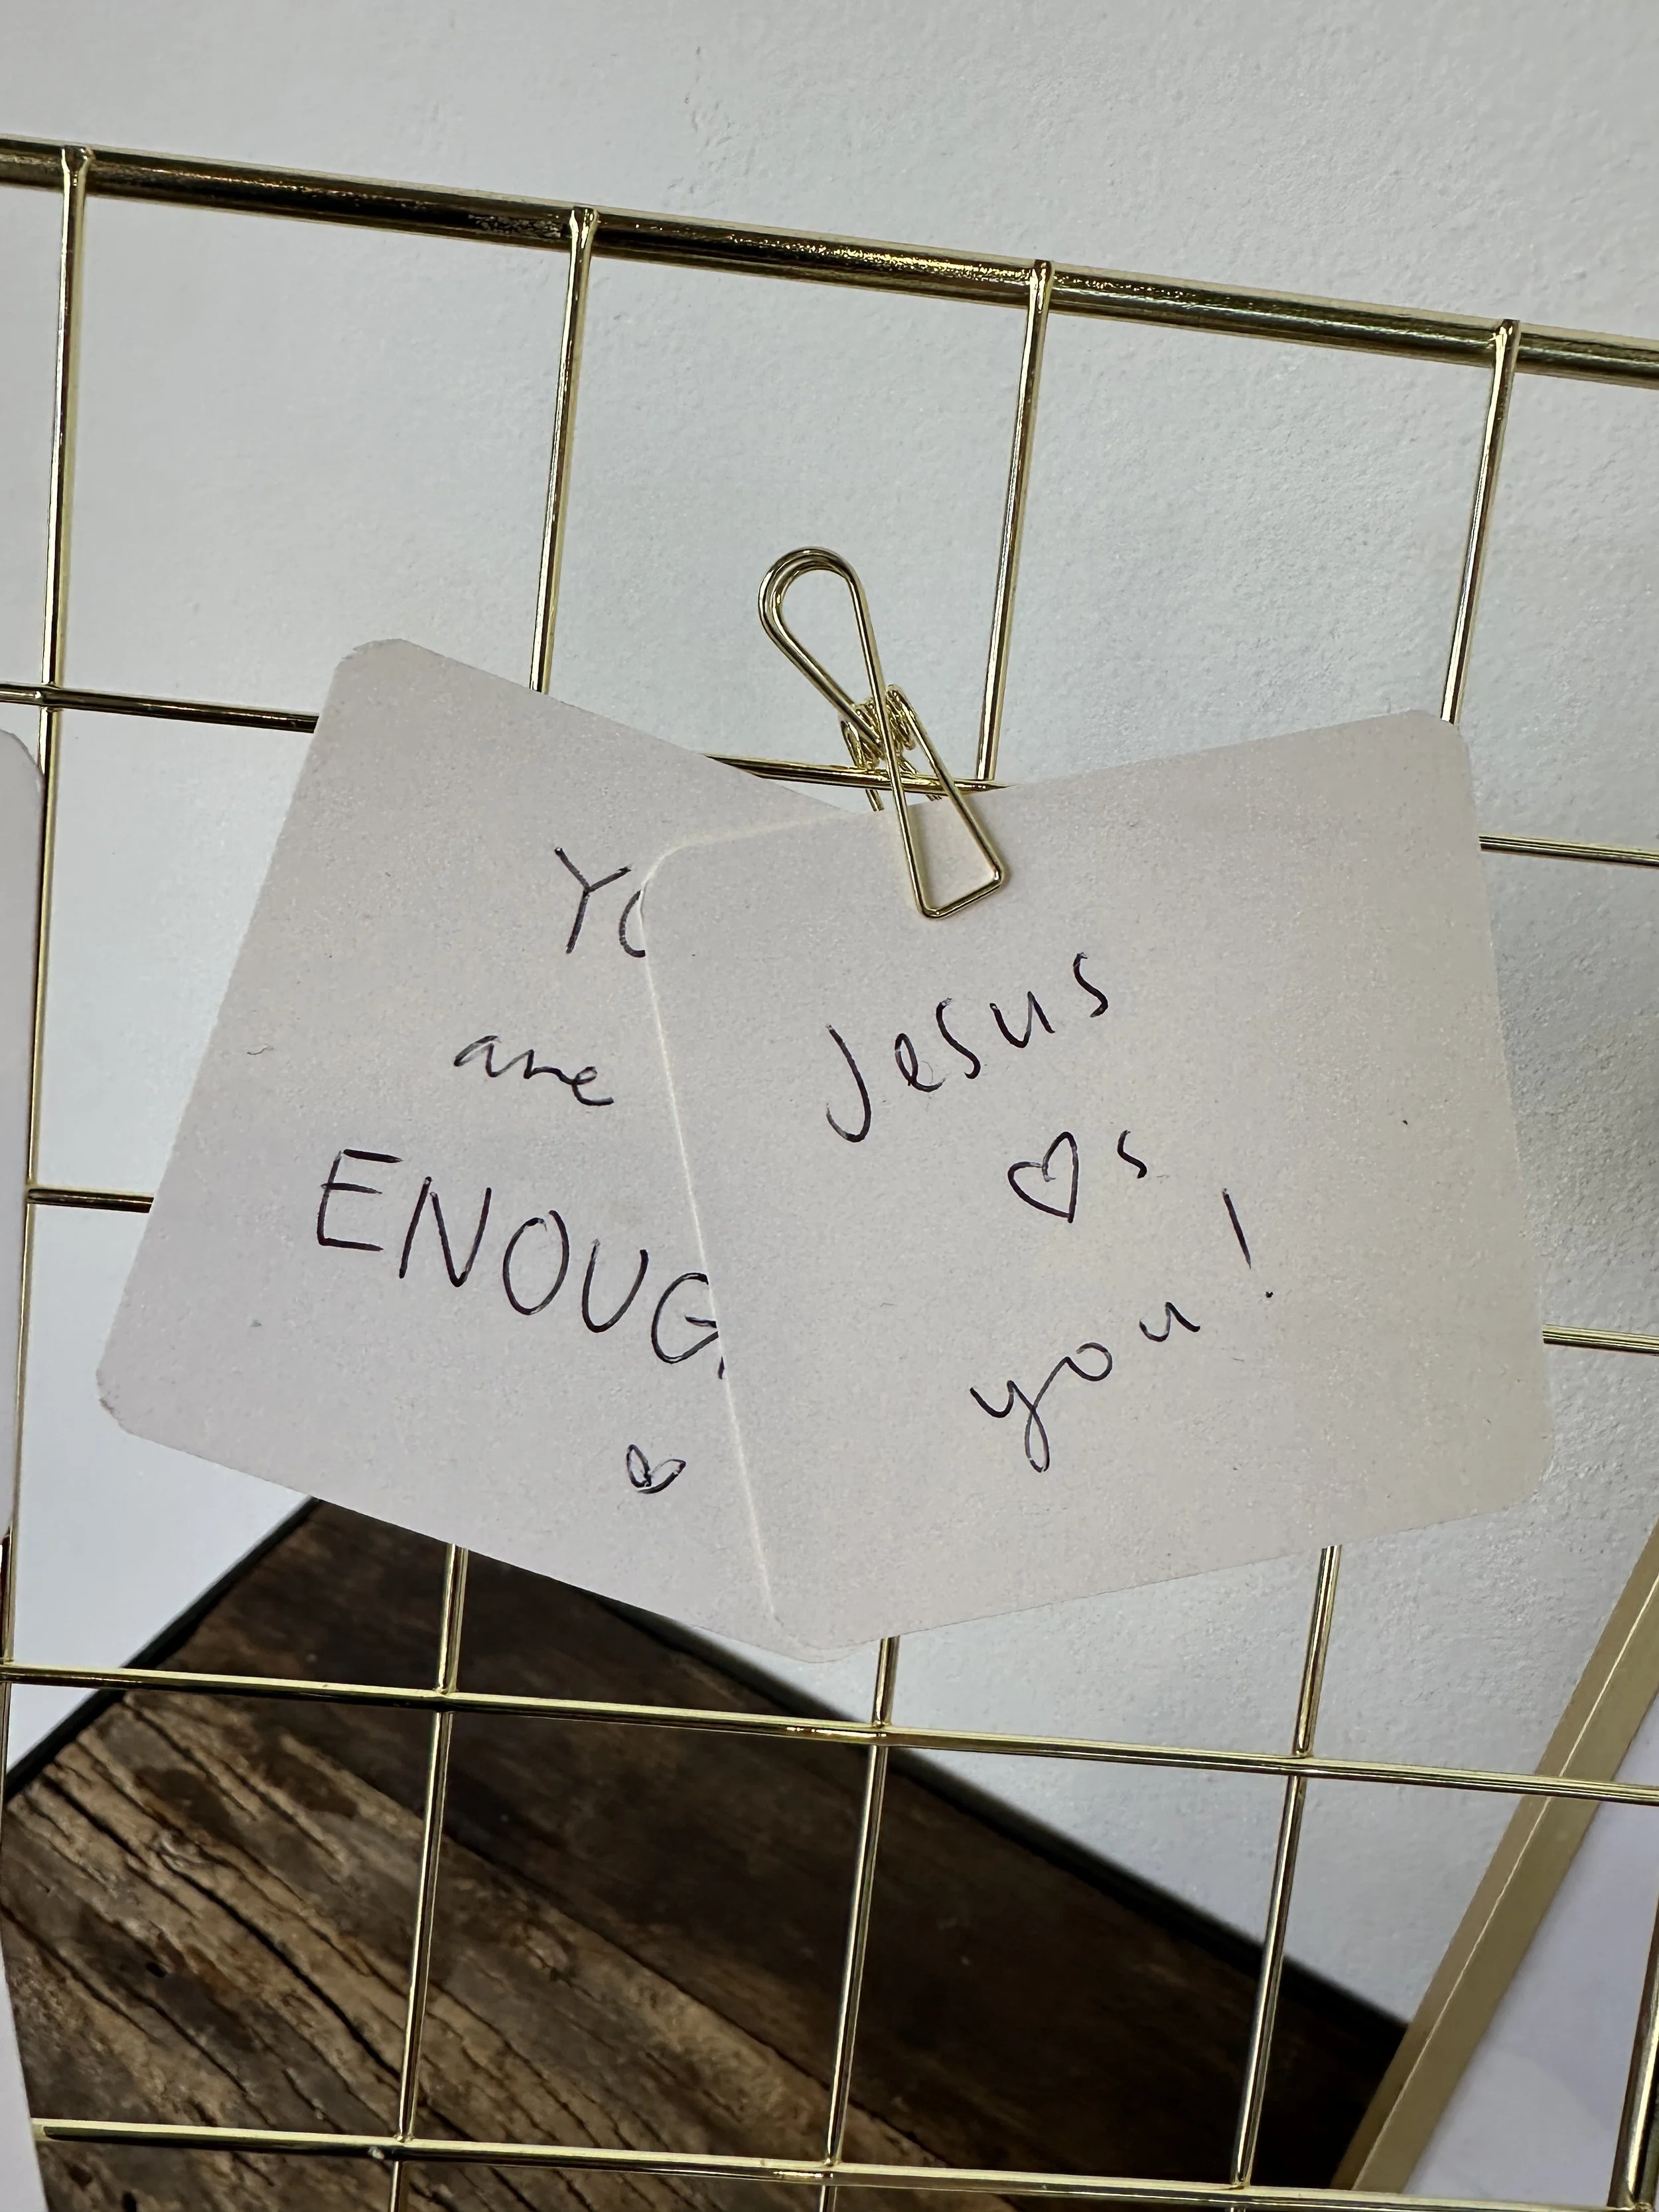 YO
are
ENOUG
Jesus
♡s
you!